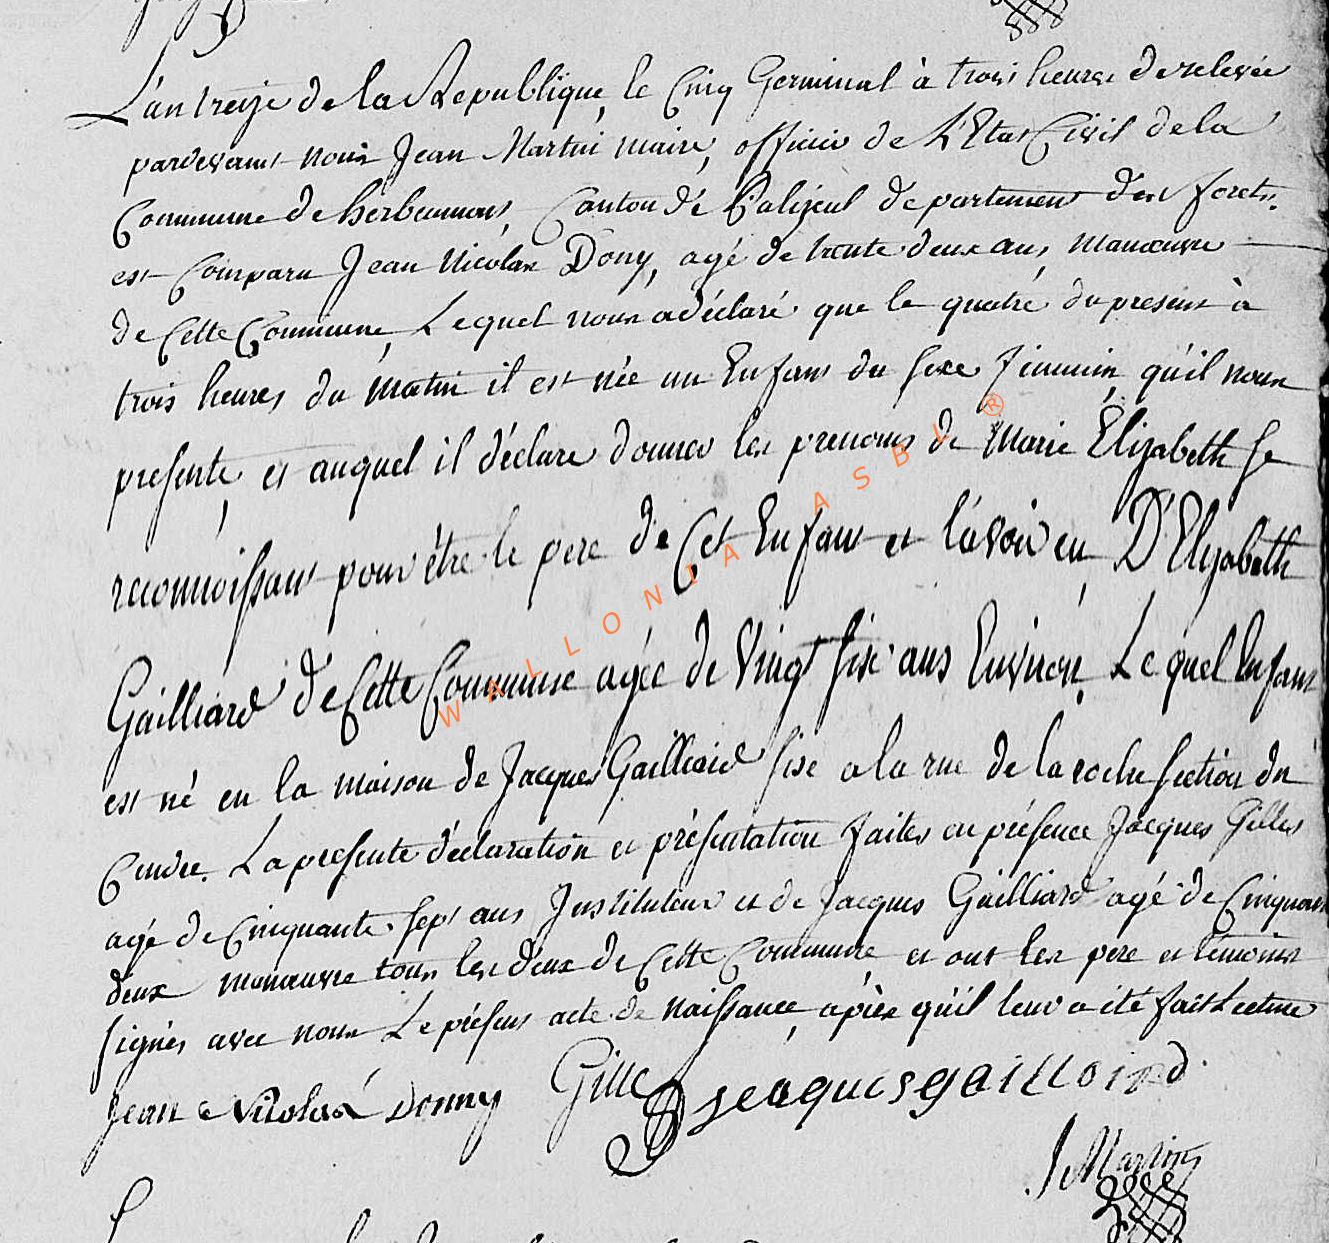 L'an treize de la Republique, le Cinq Germinal à trois heures de relevée
pardevant nous Jean Martin maire, officier de L'Etat Civil de la
Commune de herbeumont, Canton de Palizeul departement des forets.
est Comparu Jean Nicolas Dony, agé de trente deux ans, manœuvre
de Cette Commune, Lequel nous a déclaré que le quatre du present à
trois heures du matin il est née un Enfant du sexe feminin, qu'il nous
presente, et auquel il déclare donner les prenoms de Marie Elizabeth se
reconnoissant pour être le pere de Cet Enfant et l'avoir eu D'Elizabeth
Gailliard de Cette Commune agée de Vingt six ans Environ, Lequel Enfant
est né en la maison de Jacques Gailliard sise a la rue de la roche section du
Centre. La presente déclaration et présentation faites en présence Jacques Gilles
agé de Cinquante sept ans Instituteur et de Jacques Gailliard agé de Cinquante
deux manœuvre tous les deux de Cette Commune, et ont les pere et témoins
signés avec nous Le présent acte de naissance, après qu'il leur a été fait Lecture
Jean Nicolas Donny Gille Jeaques gailloird
J Martin
WALLONIA ASBL ®